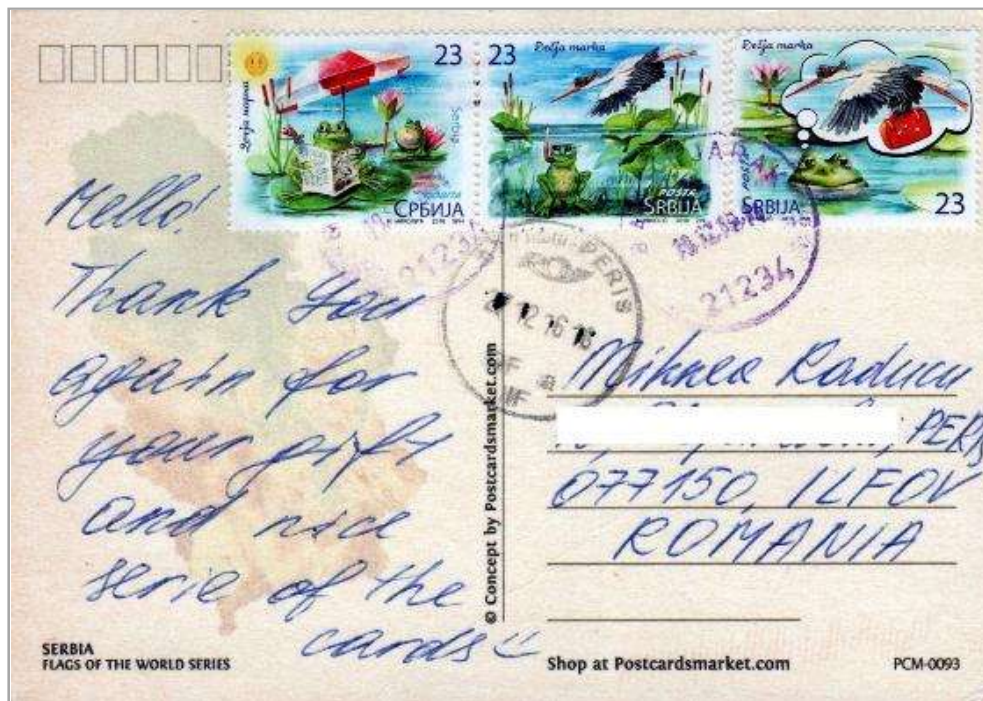 23
Дечја марка
Serbia
СРБИЈА
23
Dečja marka
POŠTA
SRBIJA
Dečja marka
POŠTA
23
21234
21234
PERIS
12 16 16
Hello!
Thank you
again for
your gift
and nice
serie of the
cards
© Concept by Postcardsmarket.com
Raducu
PERIS
077150, ILFOV
ROMANIA
SERBIA
FLAGS OF THE WORLD SERIES
Shop at Postcardsmarket.com
PCM-0093